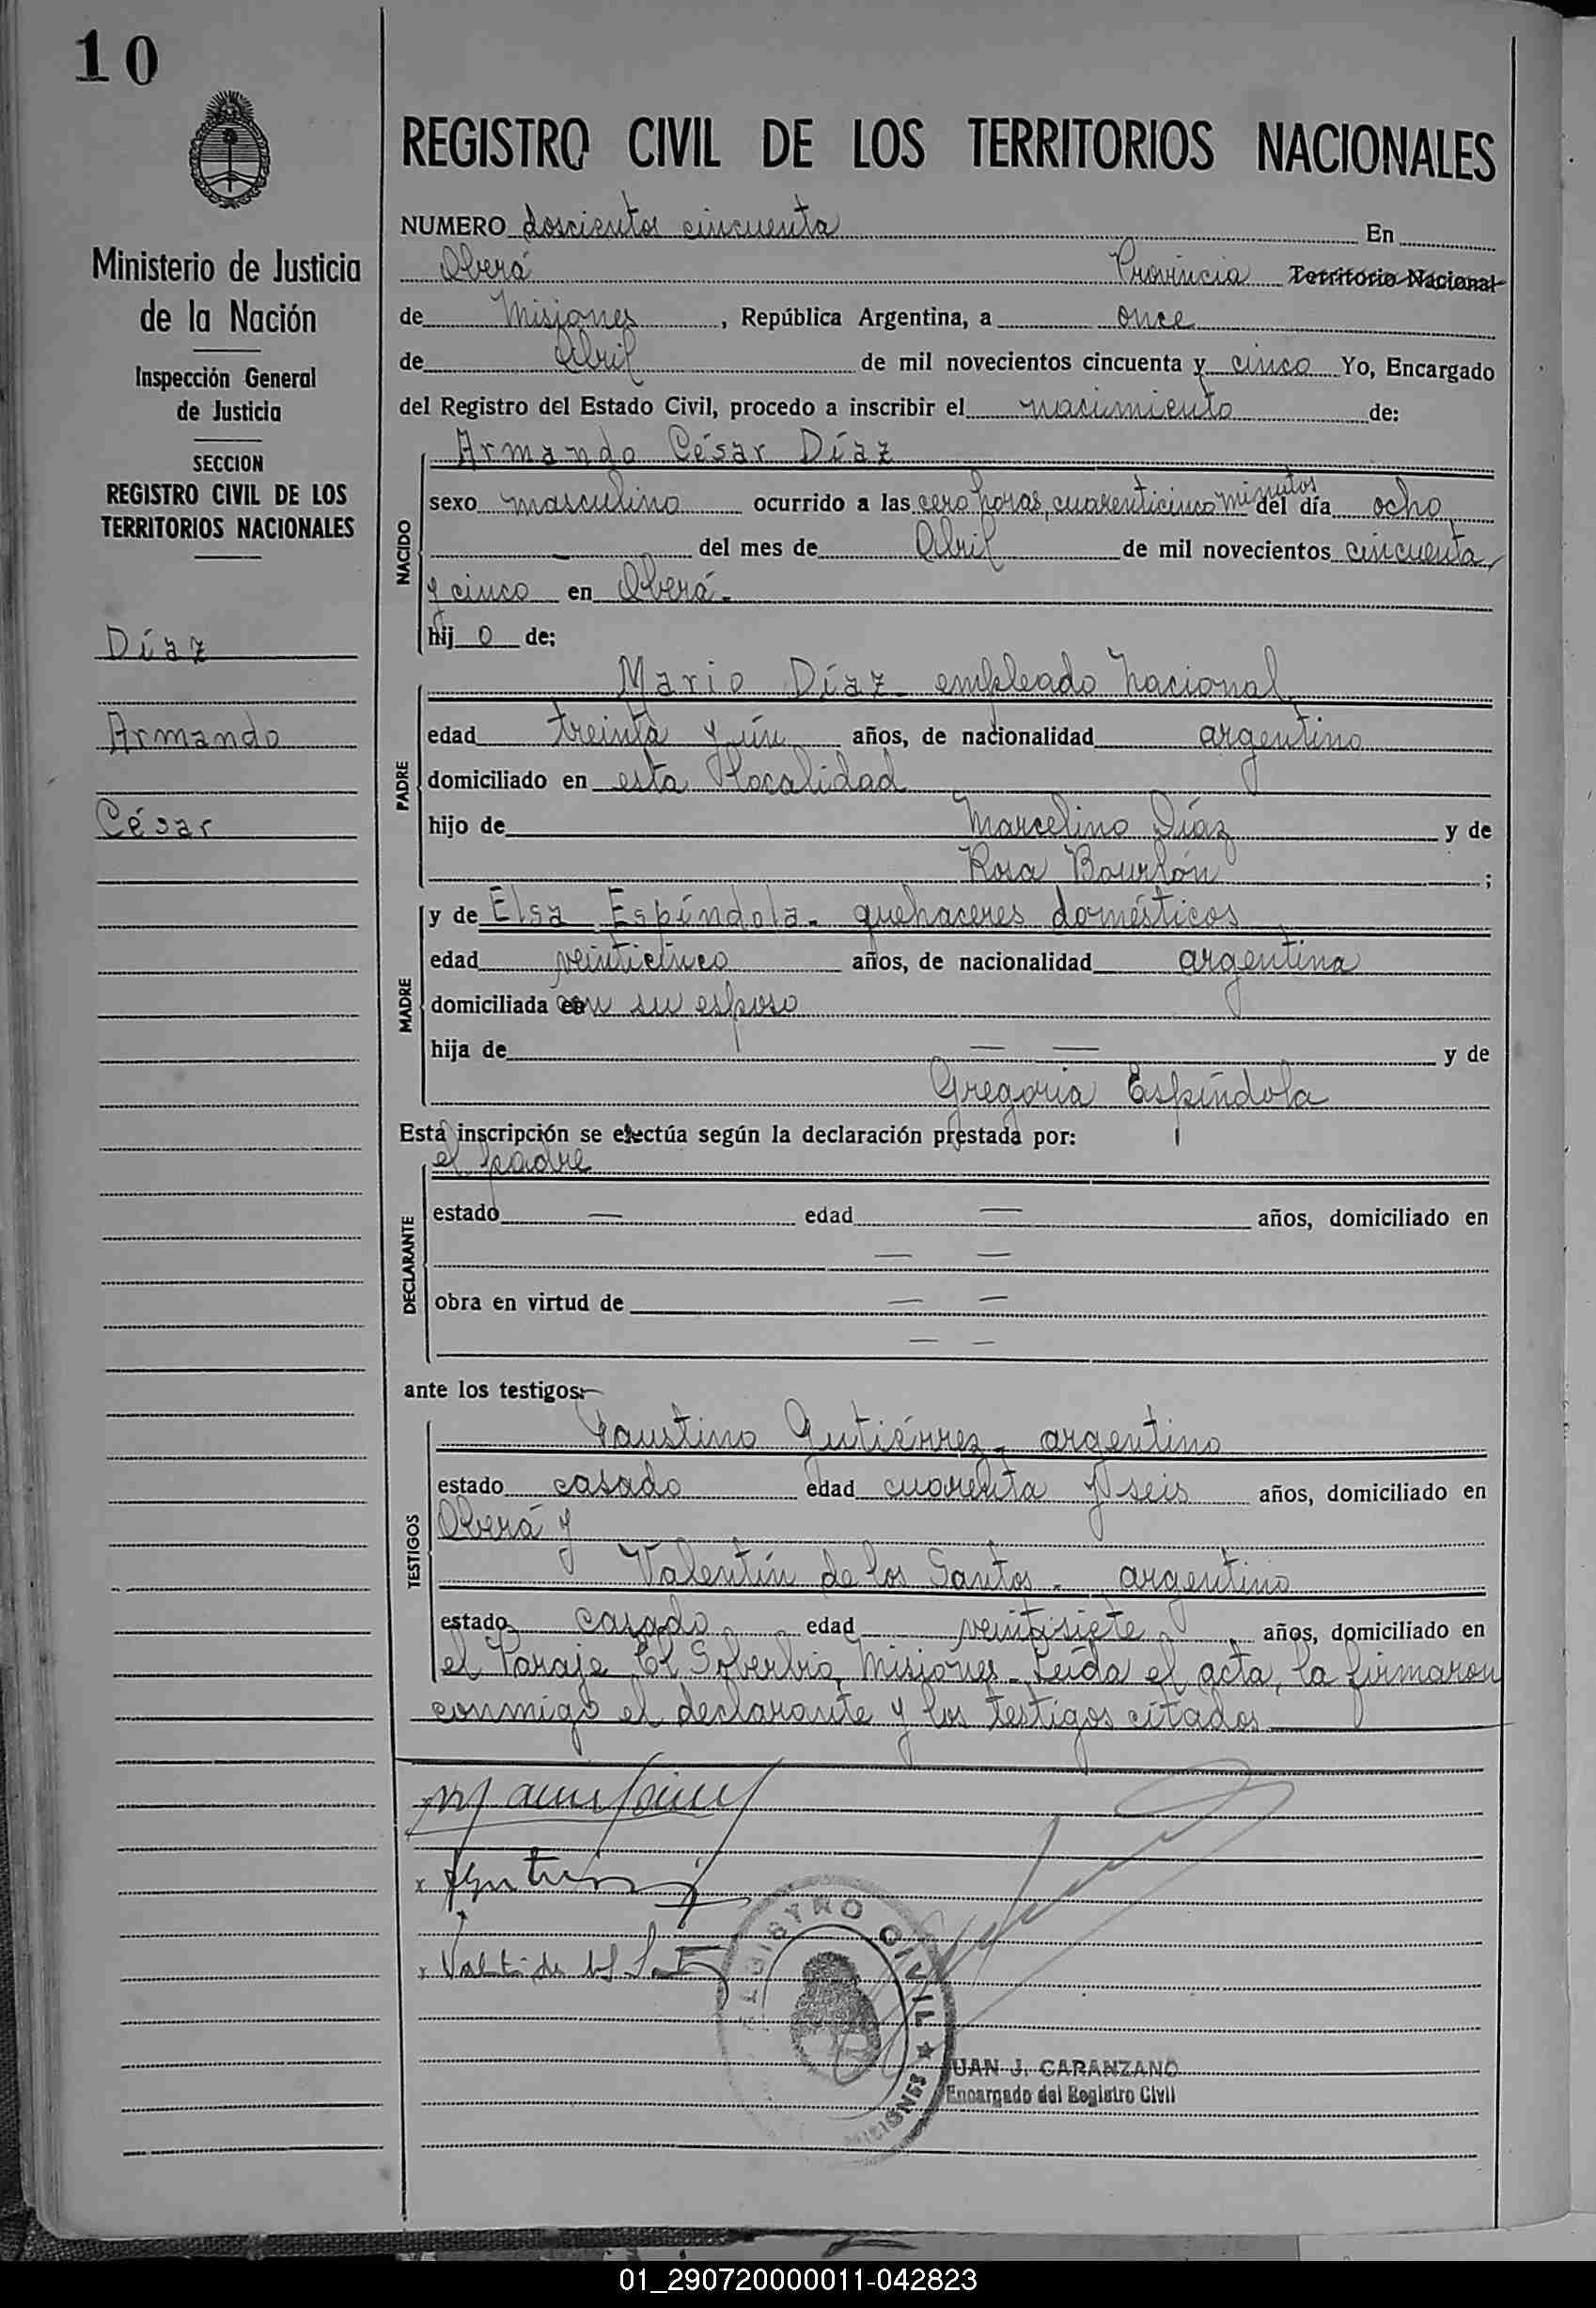 10
REGISTRO CIVIL DE LOS TERRITORIOS NACIONALES
Ministerio de Justicia
de la Nación
Inspección General
de Justicia
SECCION
REGISTRO CIVIL DE LOS
TERRITORIOS NACIONALES
Díaz
Armando
César
NUMERO doscientos cincuenta En
Oberá Provincia Territorio Nacional
de Misiones, República Argentina, a once
de Abril de mil novecientos cincuenta y cinco Yo, Encargado
del Registro del Estado Civil, procedo a inscribir el nacimiento de:
NACIDO
Armando César Díaz
sexo masculino ocurrido a las cero horas, cuarenticinco minutos del día ocho
del mes de Abril de mil novecientos cincuenta
y cinco en Oberá.
hijo de:
PADRE
Mario Díaz empleado nacional
edad treinta y ún años, de nacionalidad argentino
domiciliado en esta localidad
hijo de Marcelino Díaz y de
Rosa ;
MADRE
y de Elsa Espíndola - quehaceres domésticos
edad veinticinco años, de nacionalidad argentina
domiciliada con su esposo
hija de — — y de
Gregoria Espíndola
Esta inscripción se efectúa según la declaración prestada por:
DECLARANTE
el padre
estado — edad — años, domiciliado en
— —
obra en virtud de — —
— —
ante los testigos:
TESTIGOS
Faustino Gutiérrez - argentino
estado casado edad cuarenta y seis años, domiciliado en
Oberá y
Valentín de los Santos - argentino
estado casado edad veintisiete años, domiciliado en
el Paraje El Soberbio, Misiones - Leída el acta, la firmaron
conmigo el declarante y los testigos citados
REGISTRO CIVIL ★ MISIONES
JUAN J. CARANZANO
Encargado del Registro Civil
01_290720000011-042823